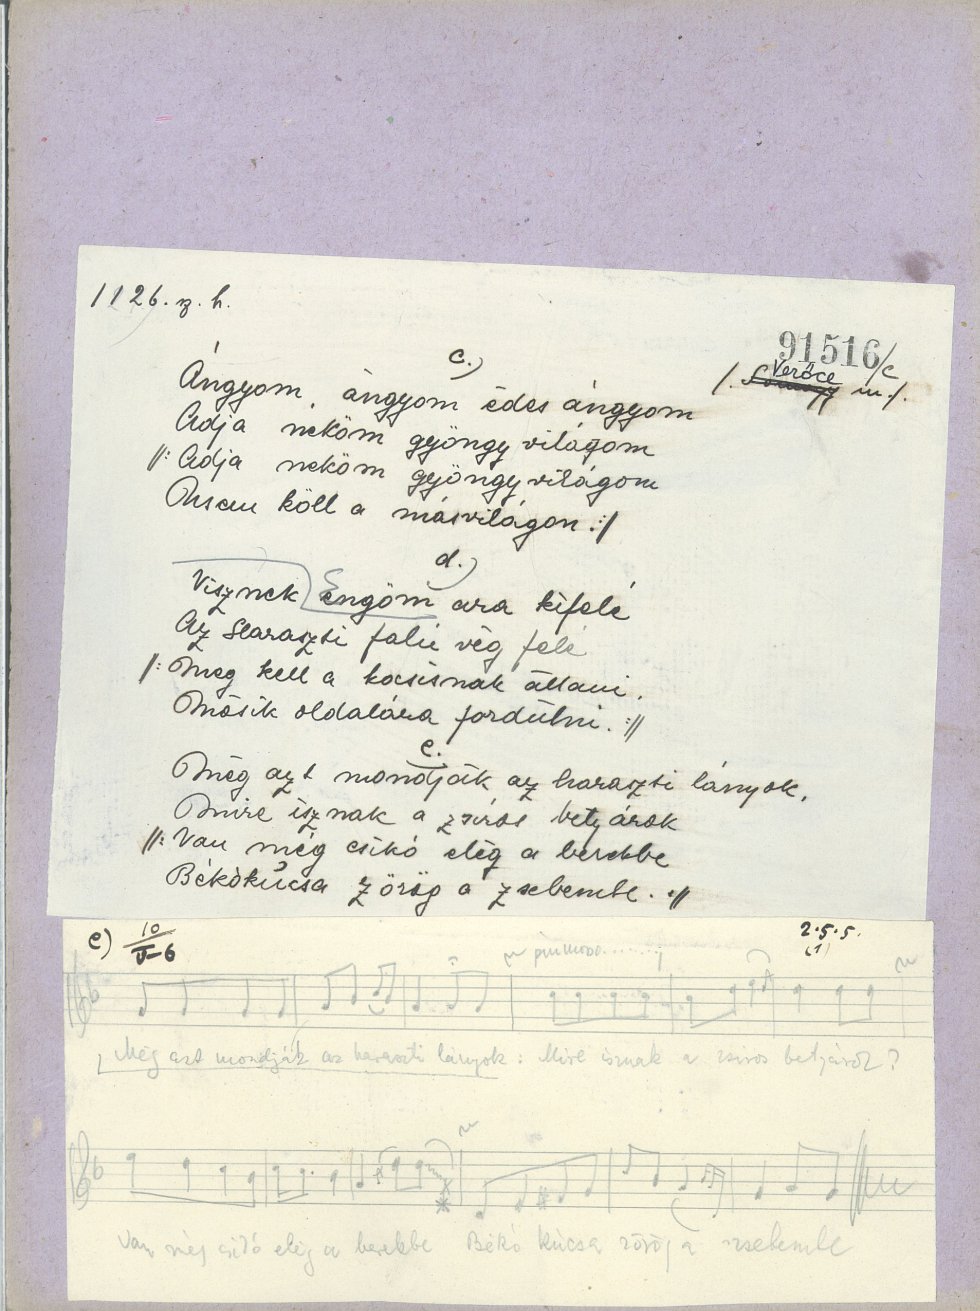 1126. z. h.
91516/c
Verőce
/. Somogy m./.
c.)
Ángyom, ángyom édes ángyom
Adja neköm gyöngyvilágom
//: Adja neköm gyöngyvilágom
köll a másvilágon :/
d.)
Visznek engöm ara kifelé
Az Haraszti falu vég felé
/: Meg kell a kocsisnak állani,
Másik oldalára fordulni. ://
e.
Még azt mondják az haraszti lányok,
Mire isznak a zsíros betyárok
//: Van még csikó elég a berekbe
Békókúcsa zörög a zsebembe. ://
e) 10/V-6
2.5.5.
(1)
Még azt mondják az haraszti lányok: Mire isznak a zsíros betyárok?
Van még csikó elég a berekbe Békó kúcsa zörög a zsebembe